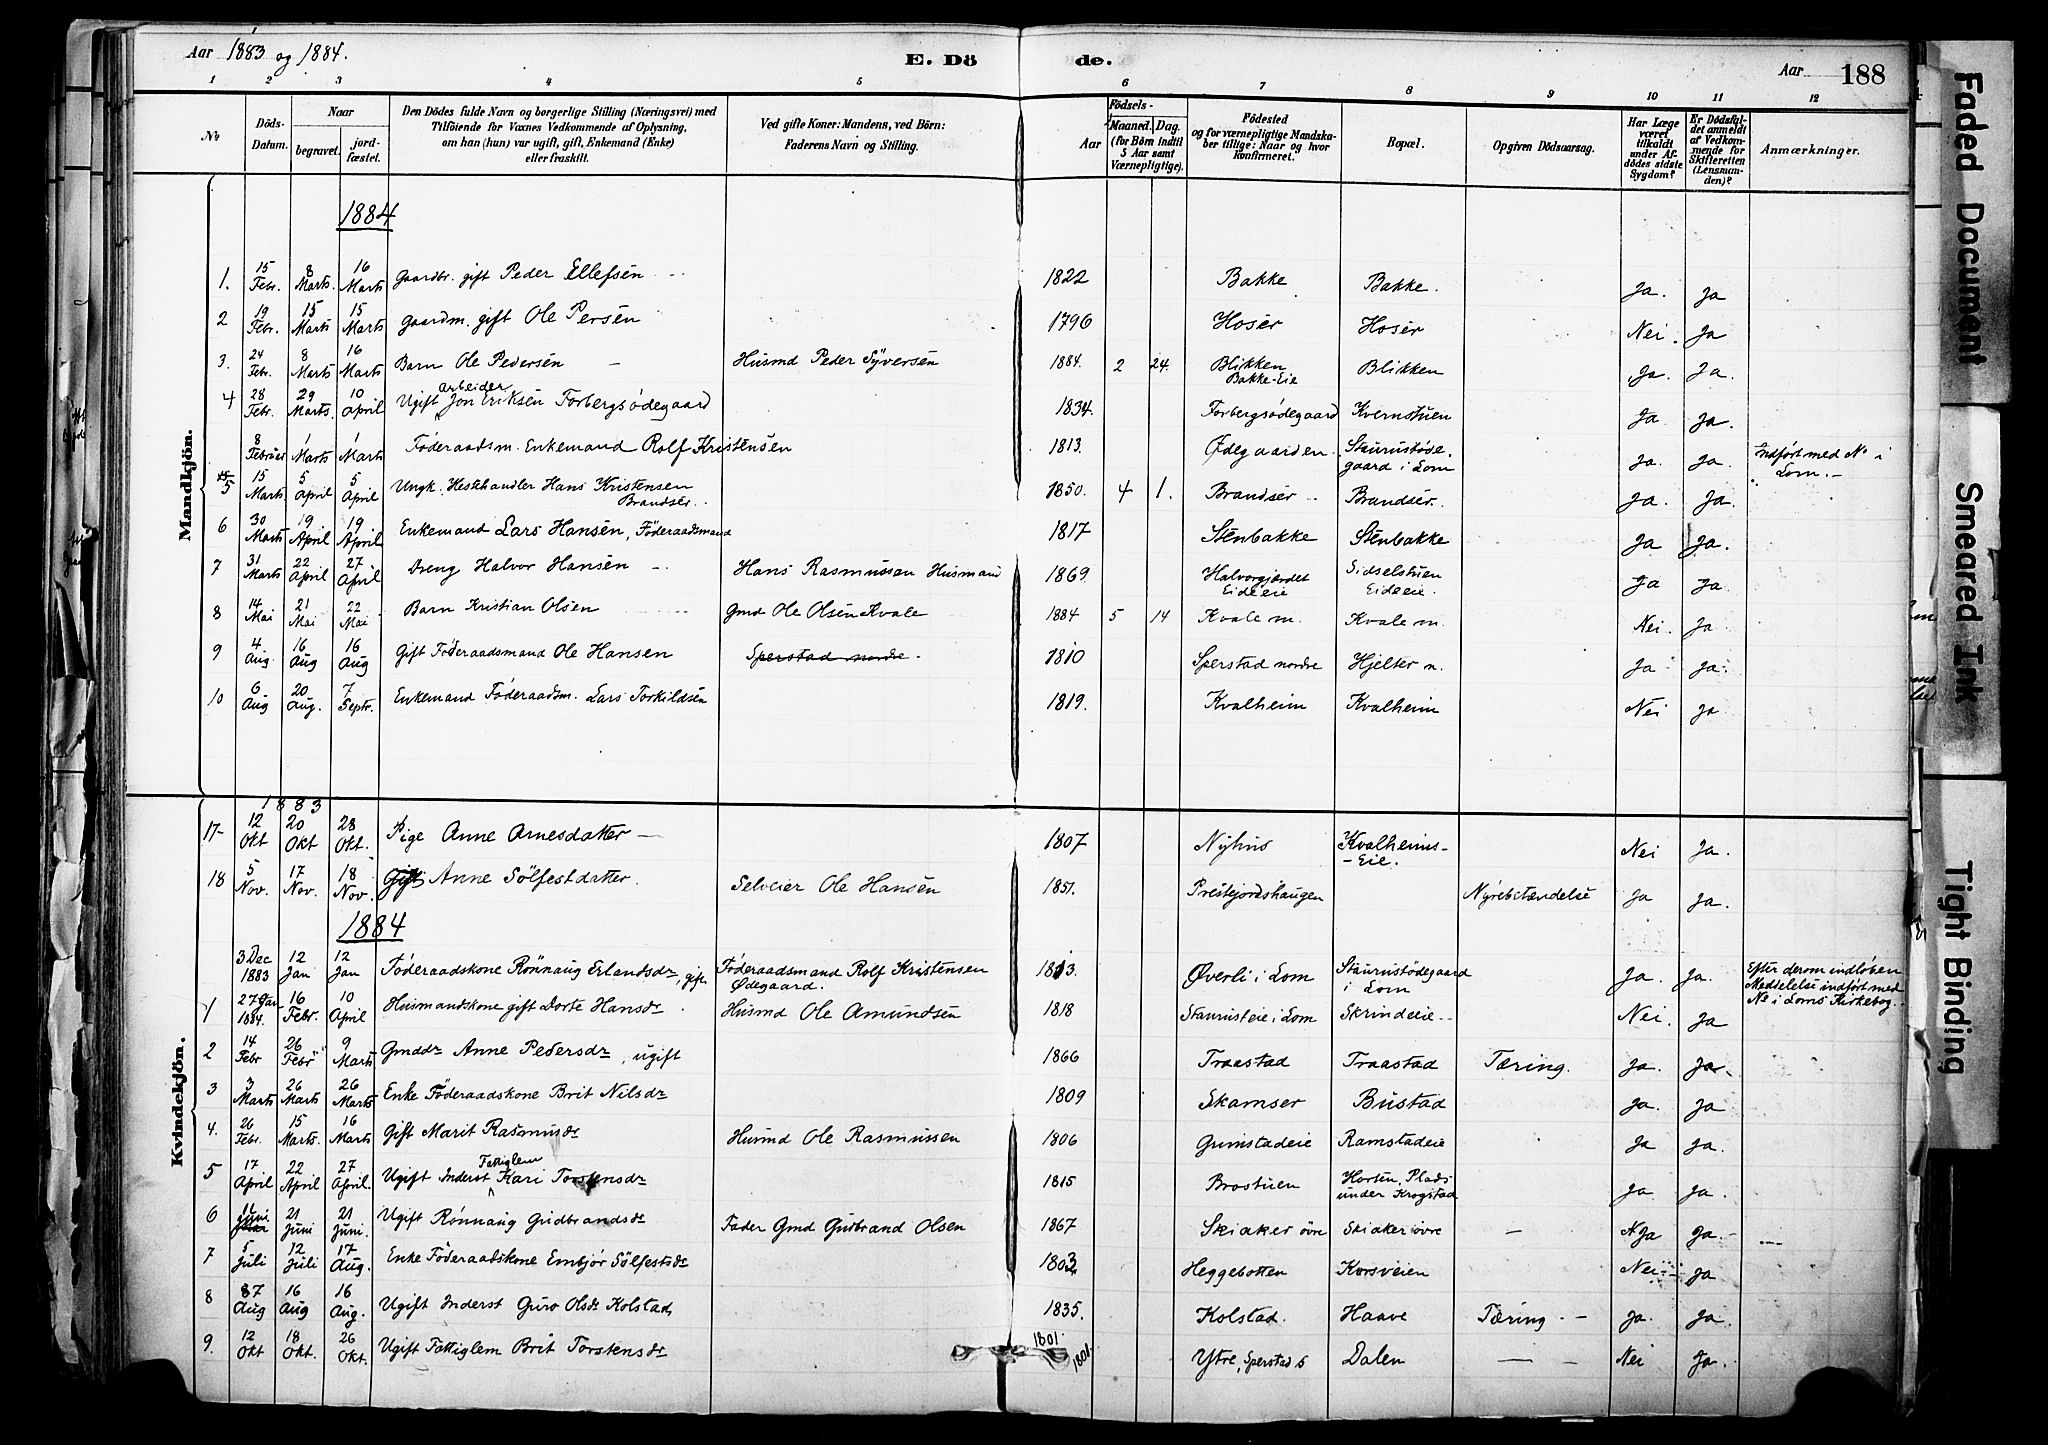 Aar 1883 og 1884.
E. Dö
de.
Aar 188
1 2 3 4 5 6 7 8 9 10 11 12
No
Döds-
Datum.
Naar
begravet.
jord-
fæstet.
Den Dödes fulde Navn og borgerlige Stilling (Næringsvei) med
Tilföiende for Voxnes Vedkommende af Oplysning,
om han (hun) var ugift, gift, Enkemand (Enke)
eller fraskilt.
Ved gifte Koner: Mandens, ved Börn:
Faderens Navn og Stilling.
Födsels-
Aar
Maaned.
Dag.
(for Börn indtil
5 Aar samt
Værnepligtige).
Födested
og for værnepligtige Mandska-
ber tillige: Naar og hvor
konfirmeret.
Bopæl.
Opgiven Dödsaarsag.
Har Læge
været
tilkaldt
under Af-
dödes sidste
Sygdom?
Er Dödsfal-
det anmeldt
af Vedkom-
mende for
Skifteretten
(Lensman-
den)?
Anmærkninger.
Mandkjön.
1884
1. 15 Febr. 8 Marts 16 Marts Gaardbr. gift Peder Ellefsen 1822 Bakke Bakke. Ja. Ja
2 19 Febr. 15 Marts 15 Marts Gaardm. gift Ole Persen 1796 Hosér Hosér Nei. Ja
3. 24 Febr. 8 Marts 16 Marts Barn Ole Pedersen – Husmd Peder Syversen 1884. 2 24. Blikken Bakke-Eie Blikken Ja. Ja.
4 28 Febr. 29 Marts. 10 April Ugift arbeider Jon Eriksen Forbergsødegaard 1834. Forbergsødegaard Kvernstuen Ja Ja.
8 Februar 1 Marts 1 Marts Føderaadsm. Enkemand Rolf Kristensen 1813. Ødegaarden Staurustøde- gaard i Lom Ja. Ja. Indført med No i Lom. –
5 15 Marts 5 April 5 April Ungk. Hestehandler Hans Kristensen Brandsér. 1850. 4 1. Brandsér Brandsér. Ja. Ja.
6 30 Marts 19 April 19 April Enkemand Lars Hansen, Föderaadsmand 1817 Stenbakke Stenbakke Ja Ja.
7 31 Marts 22 April 27 April Dreng Halvor Hansen Hans Rasmussen Husmand 1869. Halvorgjærdet Eideeie Sidselstuen Eideeie. Ja Ja.
8 14 Mai 21 Mai 22 Mai Barn Kristian Olsen Gmd Ole Olsen Kvale 1884 5 14 Kvale n. Kvale n. Nei. Ja
9 4 Aug. 16 Aug 16 Aug Gift Föderaadsmand Ole Hansen Sperstad nordre. 1810 Sperstad nordre Hjelter n. Ja Ja.
10 6 Aug 20 Aug. 7 Septr. Enkemand Föderaadsm. Lars Torkildsen 1819. Kvalheim Kvalheim Nei Ja
Kvindekjön.
1883
17- 12 Okt 20 Okt 28 Okt. Pige Anne Arnesdatter – 1807 Nyhus Kvalheims- -Eie. Nei Ja.
18 5 Nov. 17 Nov. 18 Nov. Gift Anne Sölfestdatter. Selveier Ole Hansen 1851. Prestejordshaugen Nyrebetændelse Ja Ja.
1884
3 Dec 1883 12 Jan 12 Jan Föderaadskone Rönnaug Erlandsdr, gift Föderaadsmand Rolf Kristensen Ødegaard. 1813. Øverli i Lom Staurustödegaard i Lom Ja. Ja. Efter derom indløben Meddelelse indført med No i Loms Kirkebog. –
1 27 Jan 1884. 16 Febr. 10 April Husmandskone gift Dorte Hansdr. Husmd Ole Amundsen 1818 Staurusteie i Lom Skrindeie Nei. Ja
2 14 Febr 26 Febr 9 Marts Gmddr Anne Pedersdr, ugift 1866 Traastad Traastad Tæring. Ja. Ja.
3 3 Marts 26 Marts 26 Marts Enke Föderaadskone Brit Nilsdr 1809 Skamser Bustad Ja. Ja
4. 26 Febr. 15 Marts. 16 Marts Gift Marit Rasmusdr Husmd Ole Rasmussen 1806 Grimstadeie Ramstadeie Ja Ja.
5 17 April 22 April 27 April. Ugift Inderst Fattiglem Kari Torstensdr 1815 Brostuen Horten, Plads under Krogstad Ja Ja.
6 Juni 21 Juni 21 Juni. Ugift Rönnaug Gudbrandsdr Fader Gmd Gudbrand Olsen 1867 Skiaker övre Skiaker övre – Ja Ja.
7 5 Juli 12 Juli 17 Aug. Enke Föderaadskone Embjör Sölfestsdr 1803 Heggebotten Korsveien Nei Ja
8 7 Aug 16 Aug 16 Aug. Ugift Inderst Guro Olsdr Kolstad 1835. Kolstad. Haave Tæring. Ja. Ja.
9. 12 Okt 18 Okt. 26 Okt. Ugift Fattiglem Brit Torstensdr 1801. 1801. Ytre, Sperstad s Dalen – Nei Ja.
Faded Document
Smeared Ink
Tight Binding